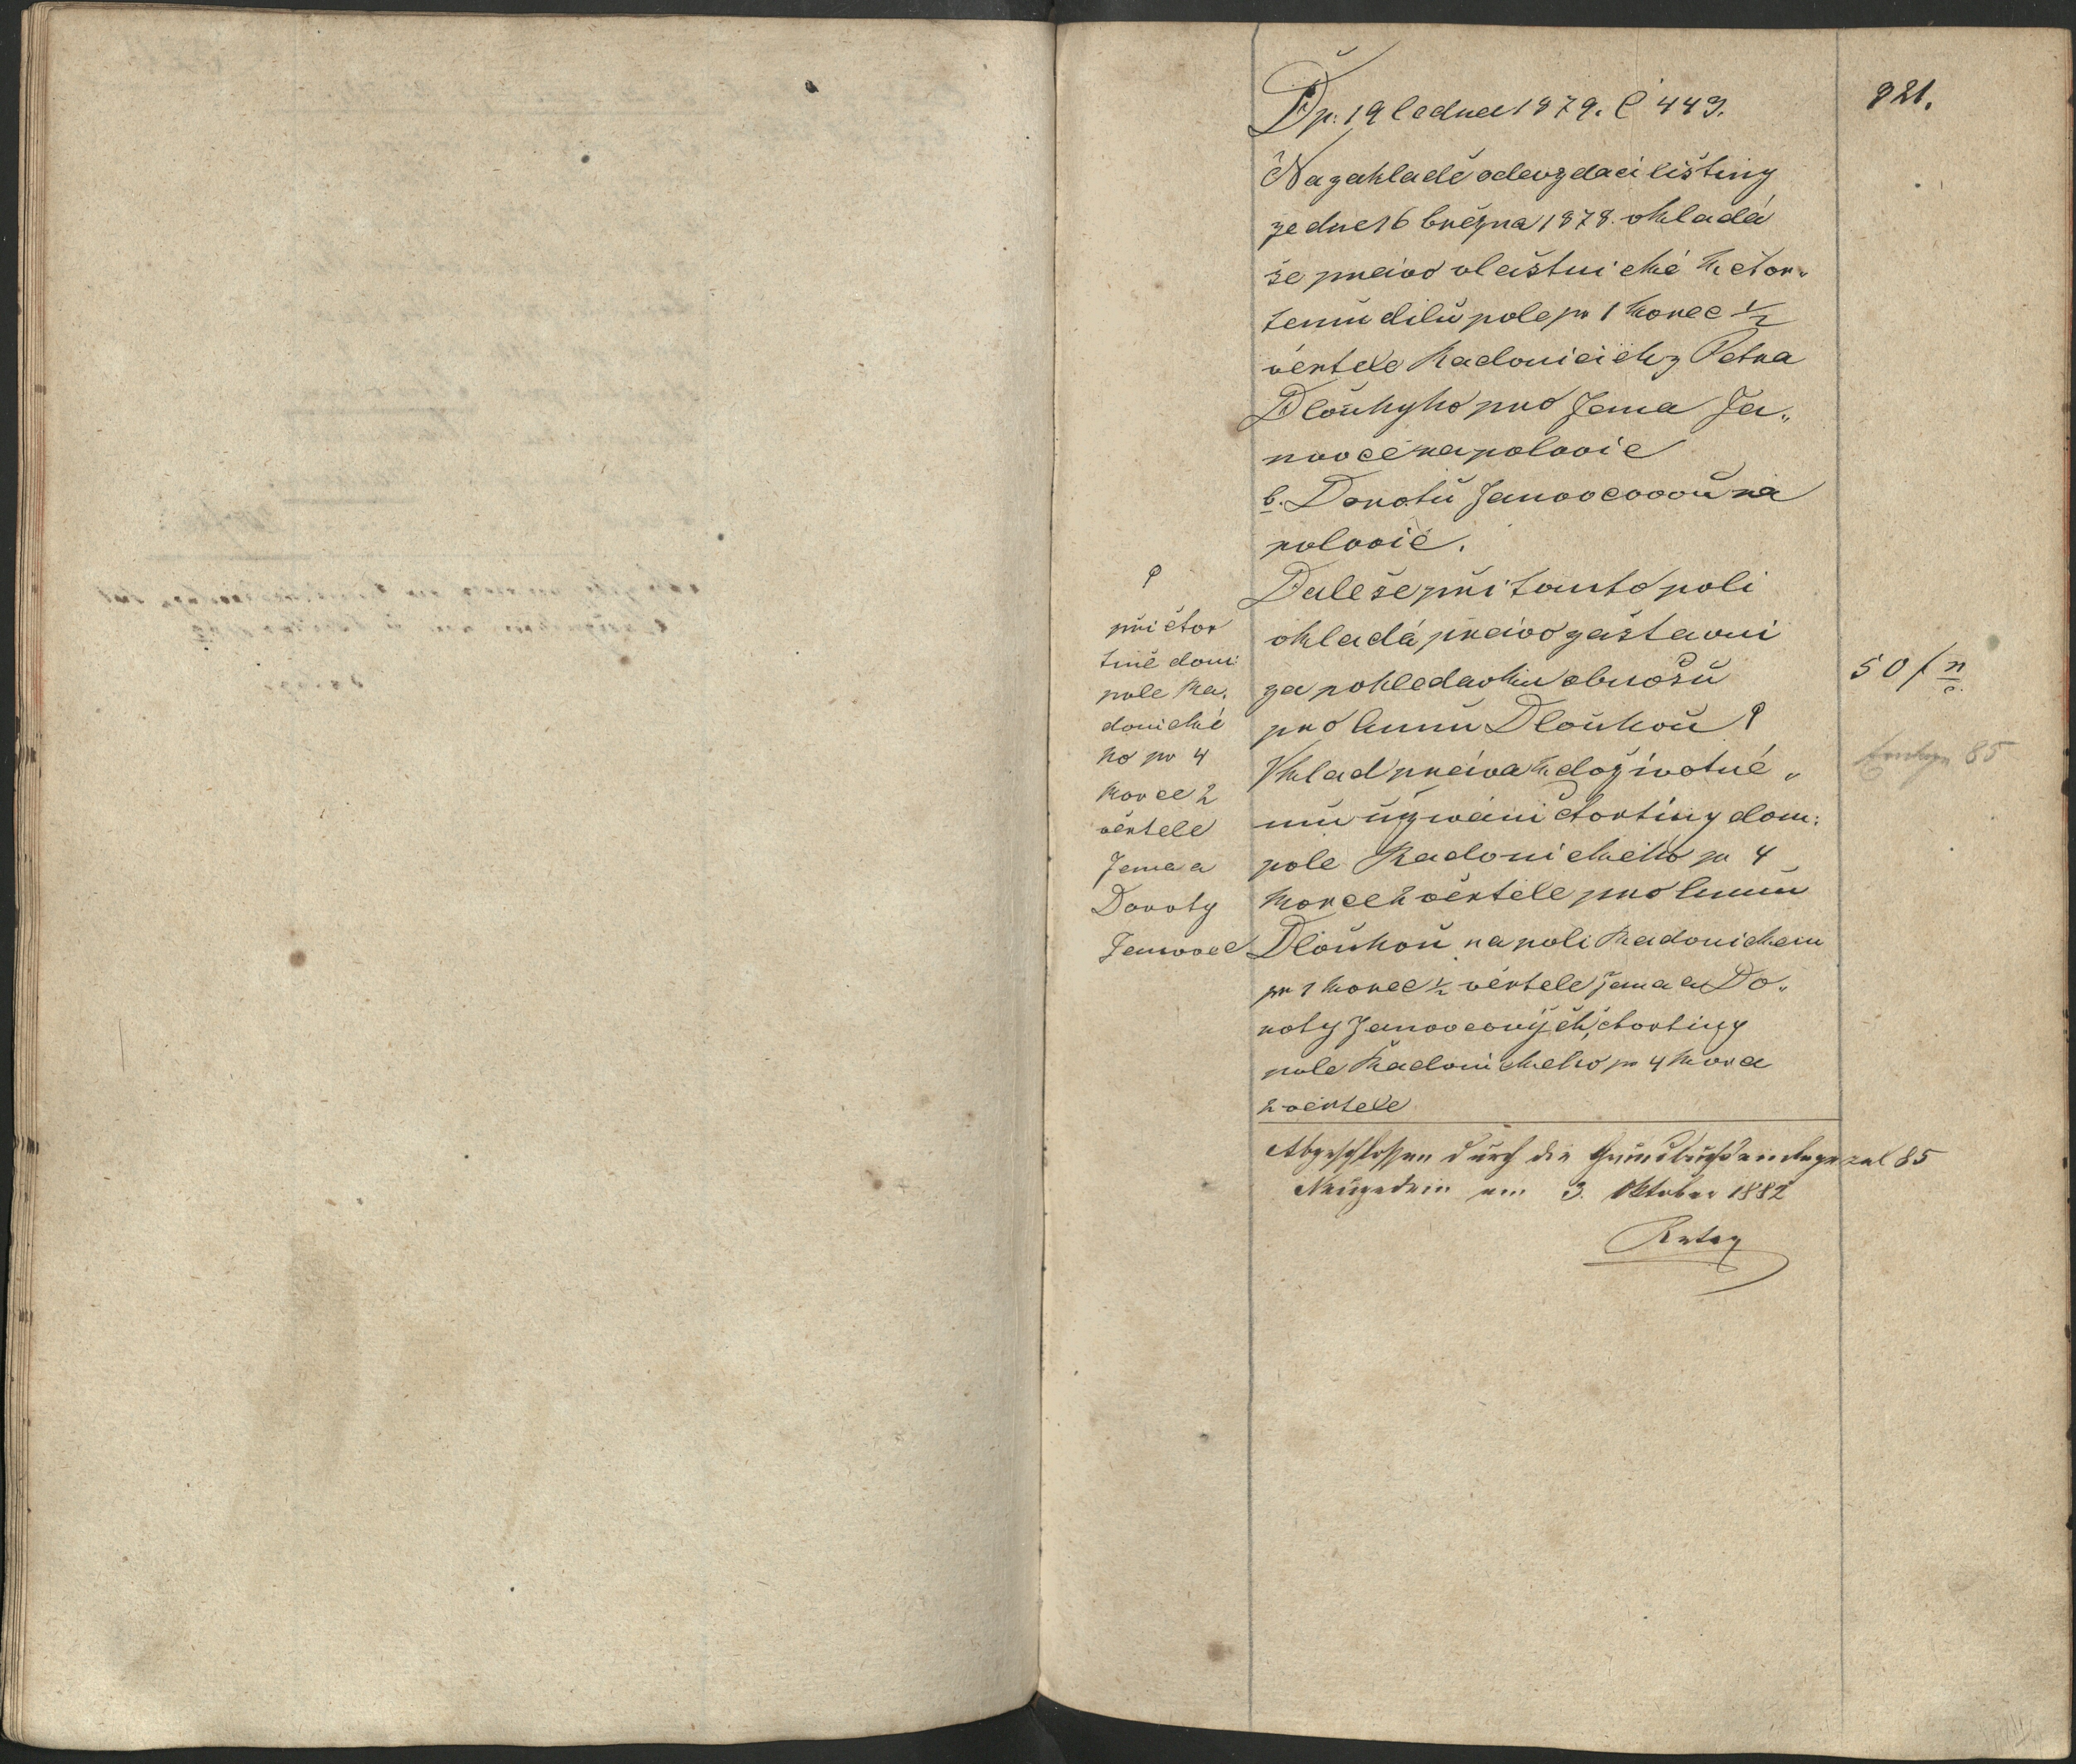 821.
Dp. 19 ledna 1879. č 443.
Na zakladě odevzdací lištiny
ze dne 16 března 1878. vkladá
se právo vlaštnické k čtvr„
temu dílu pole pr 1 korec 1/2
věrtele Radonicich z Petra
Dlouhyho pro Jana Ja„
novce na polovic
b. Dorotu Janovcovou na
polovic.
Dale se při tomto poli
vkladá právo zaštavni
za pohledavku obnosu
50 f n c.
pro Annu Dlouhou ♀
Vklad práva k doživotné„
mu užívání čtvrtiny dom:
pole Radonického pr 4
korce 2 věrtele pro Annu
Dlouhou na poli Radonickem
pr 1 korec 1/2 věrtele Jana a Do„
roty Janovcových, čtvrtiny
pole Radonického pr 4 korce
2 věrtele
♀
při čtvr
tině dom:
pole Ra„
donické
ho pr 4
korce 2
věrtele
Jana a
Doroty
Janovce
Einlage 85
Abgeschlossen durch die Grundbuchseinlagezal 85
Neugedein am 3. Oktober 1882